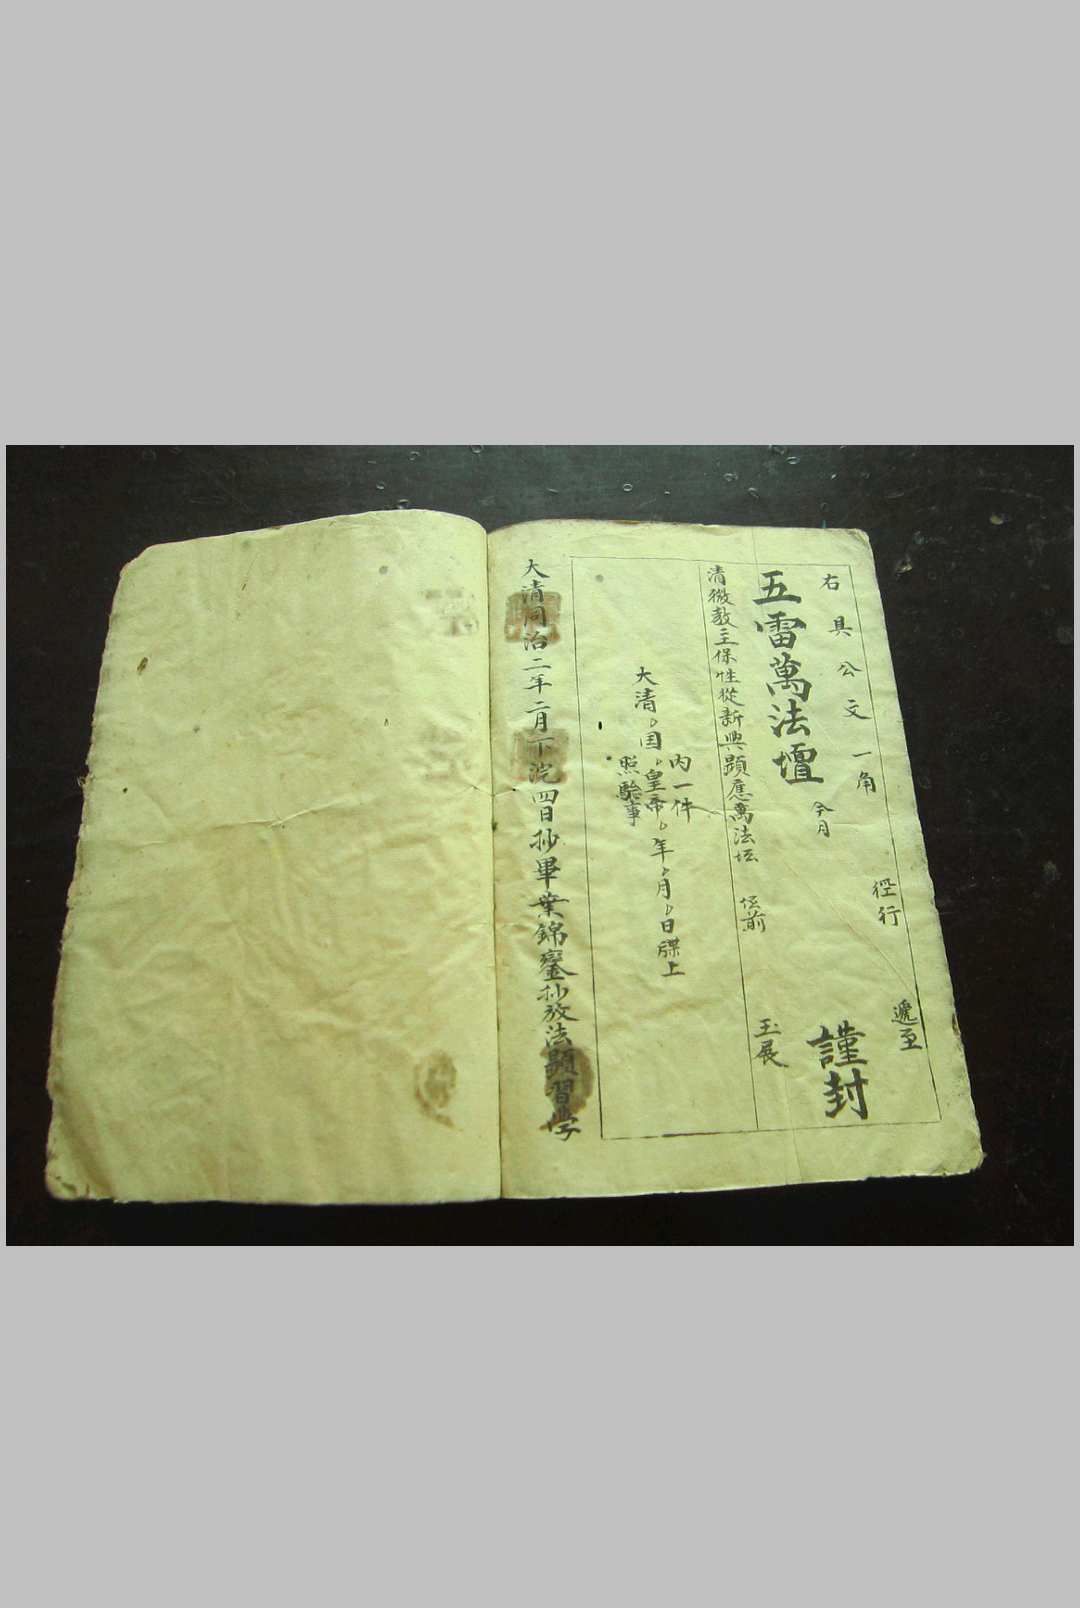 右具公文一角 徑行 遞至
五雷萬法壇 今月 謹封
清微教主保性從新興顯應萬法坛 坛前 玉展
內一件
大清 国 皇帝 年 月 日牒上
照驗事
大清同治二年二月下浣四日抄畢業錦鑾抄放法顯習學